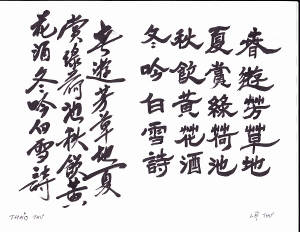 春遊芳草地
夏賞綠荷池
秋飲黃花酒
冬吟白雪詩
LỆ THƯ
春遊芳草地夏
賞綠荷池秋飲黃
花酒冬吟白雪詩
THẢO THƯ